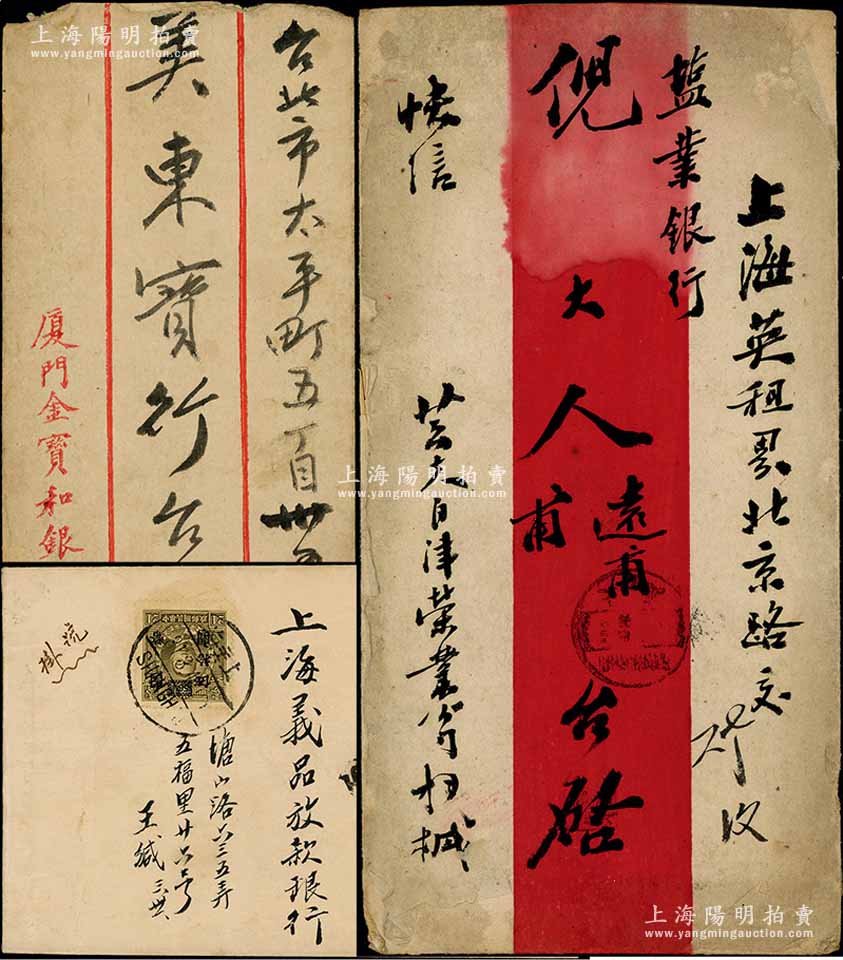 上海陽明拍賣
www.yangmingauction.com
台北市太平町五丁目卅
東寶行台
廈門金寶和銀
上海英租界北京路交
鹽業銀行
倪大人遠甫甫台啓
快信
自津榮業
上海義品放款銀行
塘山路六三五弄
五福里廿六号
王緘
掛號
SHANGHAI
上海陽明拍賣
www.yangmingauction.com
上海陽明拍賣
www.yangmingauction.com